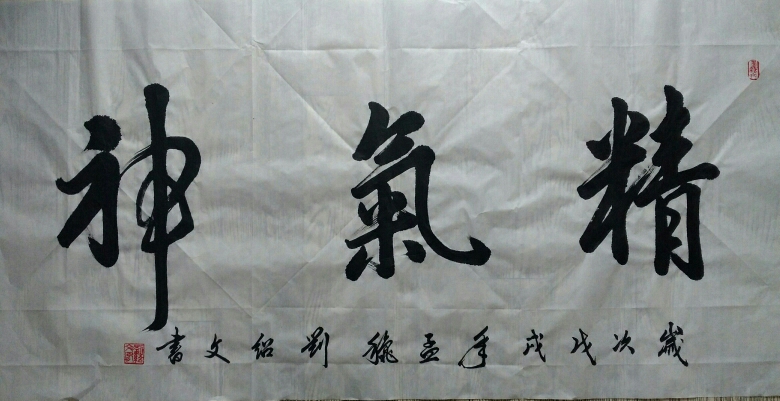 精氣神
歲次戊戌年孟秋劉紹文書